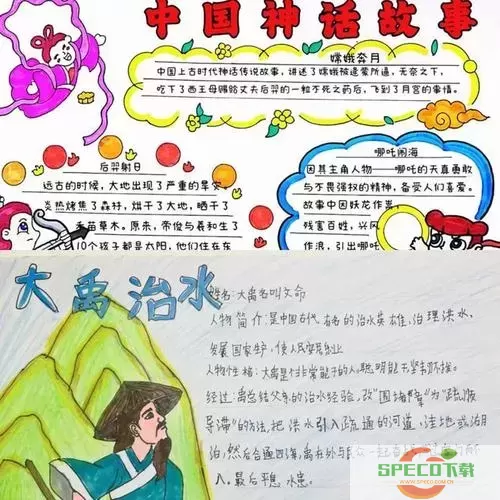 中国神话故事
嫦娥奔月
中国上古时代神话传说故事，讲述了嫦娥被逢蒙所逼，无奈之下，
吃下了西王母赐给丈夫后羿的一粒不死之药后，飞到了月宫的事情。
后羿射日
远古的时候，大地出现了严重的旱灾
炎热烤焦了森林，烘干了大地，晒干了
禾苗草木。原来，帝俊与羲和生了
10个孩子都是太阳，他们住在东
哪吒闹海
因其主角人物——哪吒的天真勇敢
与不畏强权的精神，备受人们喜爱。
故事中因妖龙作祟，
残害百姓，兴风
作浪，引出哪吒
大禹治水
姓名：大禹名叫文命
人物简介：是中国古代有名的治水英雄，治理洪水，
发展国家生产，使人民安居乐业
人物性格：大禹是个非常能干的人，聪明能干坚韧
经过：禹总结父年的治水经验，改"围堵障"为"疏顺
导滞"的方法，把洪水引入疏通的河道，洼地或湖
泊，然后合通四海，禹在外与民众一起
入。最后平息水患。
SPECO下载
SPECO.COM